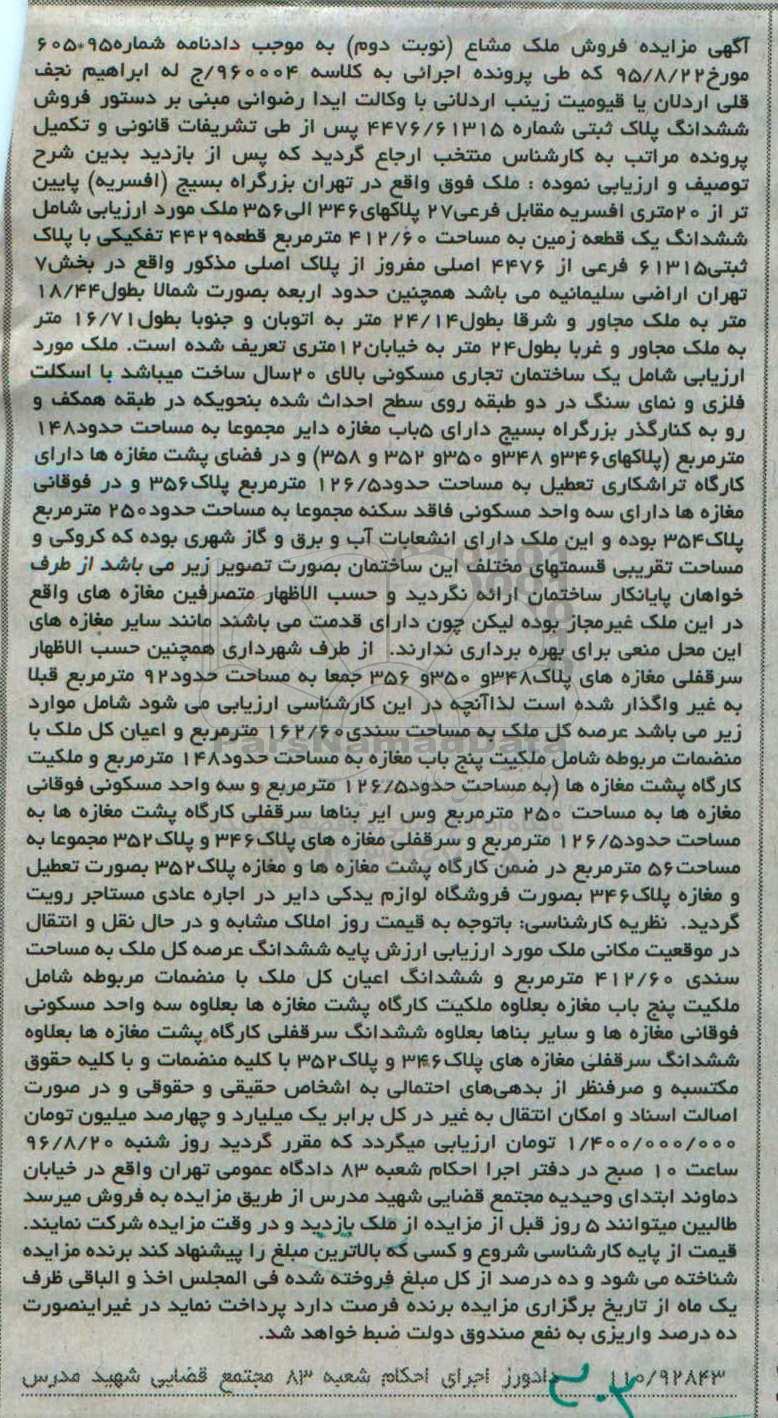 آگهی مزایده فروش ملک مشاع (نوبت دوم) به موجب دادنامه شماره۹۵۰۶۰۵
مورخ۹۵/۸/۲۲ که طی پرونده اجرائی به کلاسه ۹۶۰۰۰۴/ج له ابراهیم نجف
قلی اردلان یا قیومیت زینب اردلانی با وکالت ایدا رضوانی مبنی بر دستور فروش
ششدانگ پلاک ثبتی شماره ۴۴۷۶/۶۱۳۱۵ پس از طی تشریفات قانونی و تکمیل
پرونده مراتب به کارشناس منتخب ارجاع گردید که پس از بازدید بدین شرح
توصیف و ارزیابی نموده : ملک فوق واقع در تهران بزرگراه بسیج (افسریه) پایین
تر از ۲۰متری افسریه مقابل فرعی۲۷ پلاکهای۳۴۶ الی۳۵۶ ملک مورد ارزیابی شامل
ششدانگ یک قطعه زمین به مساحت ۴۱۲/۶۰ مترمربع قطعه۴۴۲۹ تفکیکی با پلاک
ثبتی۶۱۳۱۵ فرعی از ۴۴۷۶ اصلی مفروز از پلاک اصلی مذکور واقع در بخش۷
تهران اراضی سلیمانیه می باشد همچنین حدود اربعه بصورت شمالا بطول۱۸/۴۴
متر به ملک مجاور و شرقا بطول۲۴/۱۴ متر به اتوبان و جنوبا بطول۱۶/۷۱ متر
به ملک مجاور و غربا بطول۲۴ متر به خیابان۱۲متری تعریف شده است. ملک مورد
ارزیابی شامل یک ساختمان تجاری مسکونی بالای ۲۰سال ساخت میباشد با اسکلت
فلزی و نمای سنگ در دو طبقه روی سطح احداث شده بنحویکه در طبقه همکف و
رو به کنارگذر بزرگراه بسیج دارای ۵باب مغازه دایر مجموعا به مساحت حدود۱۴۸
مترمربع (پلاکهای۳۴۶و ۳۴۸و ۳۵۰و ۳۵۲ و ۳۵۸) و در فضای پشت مغازه ها دارای
کارگاه تراشکاری تعطیل به مساحت حدود۱۲۶/۵ مترمربع پلاک۳۵۶ و در فوقانی
مغازه ها دارای سه واحد مسکونی فاقد سکنه مجموعا به مساحت حدود۲۵۰ مترمربع
پلاک۳۵۴ بوده و این ملک دارای انشعابات آب و برق و گاز شهری بوده که کروکی و
مساحت تقریبی قسمتهای مختلف این ساختمان بصورت تصویر زیر می باشد از طرف
خواهان پایانکار ساختمان ارائه نگردید و حسب الاظهار متصرفین مغازه های واقع
در این ملک غیرمجاز بوده لیکن چون دارای قدمت می باشند مانند سایر مغازه های
این محل منعی برای بهره برداری ندارند. از طرف شهرداری همچنین حسب الاظهار
سرقفلی مغازه های پلاک۳۴۸و ۳۵۰و ۳۵۶ جمعا به مساحت حدود۹۲ مترمربع قبلا
به غیر واگذار شده است لذاآنچه در این کارشناسی ارزیابی می شود شامل موارد
زیر می باشد عرصه کل ملک به مساحت سندی۱۶۲/۶۰ مترمربع و اعیان کل ملک با
منضمات مربوطه شامل ملکیت پنج باب مغازه به مساحت حدود۱۴۸ مترمربع و ملکیت
کارگاه پشت مغازه ها (به مساحت حدود۱۲۶/۵ مترمربع و سه واحد مسکونی فوقانی
مغازه ها به مساحت ۲۵۰ مترمربع وس ایر بناها سرقفلی کارگاه پشت مغازه ها به
مساحت حدود۱۲۶/۵ مترمربع و سرقفلی مغازه های پلاک۳۴۶ و پلاک۳۵۲ مجموعا به
مساحت۵۶ مترمربع در ضمن کارگاه پشت مغازه ها و مغازه پلاک۳۵۲ بصورت تعطیل
و مغازه پلاک۳۴۶ بصورت فروشگاه لوازم یدکی دایر در اجاره عادی مستاجر رویت
گردید. نظریه کارشناسی: باتوجه به قیمت روز املاک مشابه و در حال نقل و انتقال
در موقعیت مکانی ملک مورد ارزیابی ارزش پایه ششدانگ عرصه کل ملک به مساحت
سندی ۴۱۲/۶۰ مترمربع و ششدانگ اعیان کل ملک با منضمات مربوطه شامل
ملکیت پنج باب مغازه بعلاوه ملکیت کارگاه پشت مغازه ها بعلاوه سه واحد مسکونی
فوقانی مغازه ها و سایر بناها بعلاوه ششدانگ سرقفلی کارگاه پشت مغازه ها بعلاوه
ششدانگ سرقفلی مغازه های پلاک۳۴۶ و پلاک۳۵۲ با کلیه منضمات و با کلیه حقوق
مکتسبه و صرفنظر از بدهی‌های احتمالی به اشخاص حقیقی و حقوقی و در صورت
اصالت اسناد و امکان انتقال به غیر در کل برابر یک میلیارد و چهارصد میلیون تومان
۱/۴۰۰/۰۰۰/۰۰۰ تومان ارزیابی میگردد که مقرر گردید روز شنبه ۹۶/۸/۲۰
ساعت ۱۰ صبح در دفتر اجرا احکام شعبه ۸۳ دادگاه عمومی تهران واقع در خیابان
دماوند ابتدای وحیدیه مجتمع قضایی شهید مدرس از طریق مزایده به فروش میرسد
طالبین میتوانند ۵ روز قبل از مزایده از ملک بازدید و در وقت مزایده شرکت نمایند.
قیمت از پایه کارشناسی شروع و کسی که بالاترین مبلغ را پیشنهاد کند برنده مزایده
شناخته می شود و ده درصد از کل مبلغ فروخته شده فی المجلس اخذ و الباقی ظرف
یک ماه از تاریخ برگزاری مزایده برنده فرصت دارد پرداخت نماید در غیراینصورت
ده درصد واریزی به نفع صندوق دولت ضبط خواهد شد.
۱۱۰/۹۲۸۴۳ دادورز اجرای احکام شعبه ۸۳ مجتمع قضایی شهید مدرس